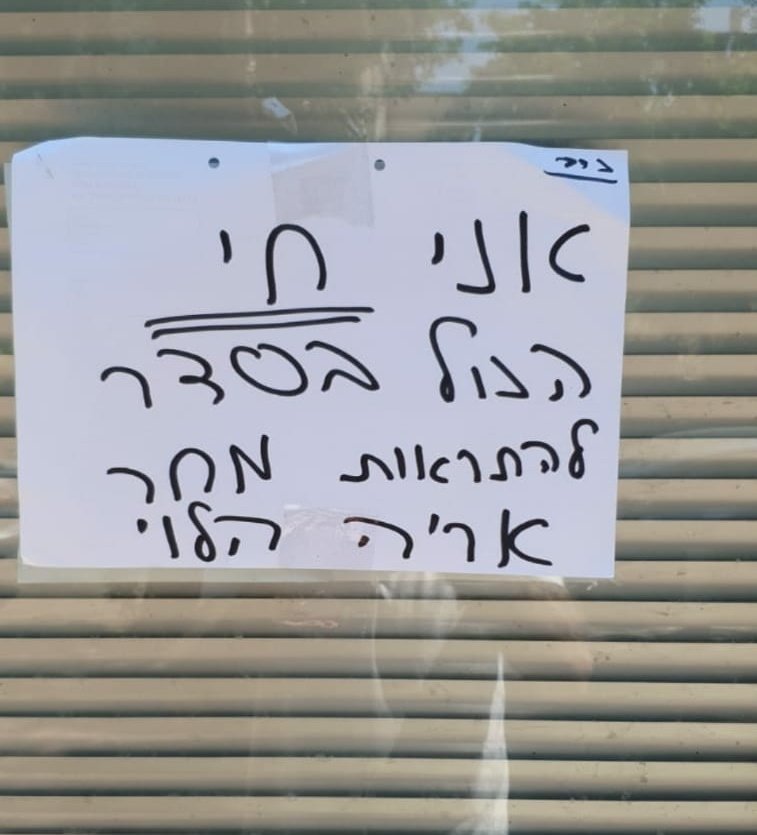 בס״ד
אני חי
הכול בסדר
להתראות מחר
אריה הלוי